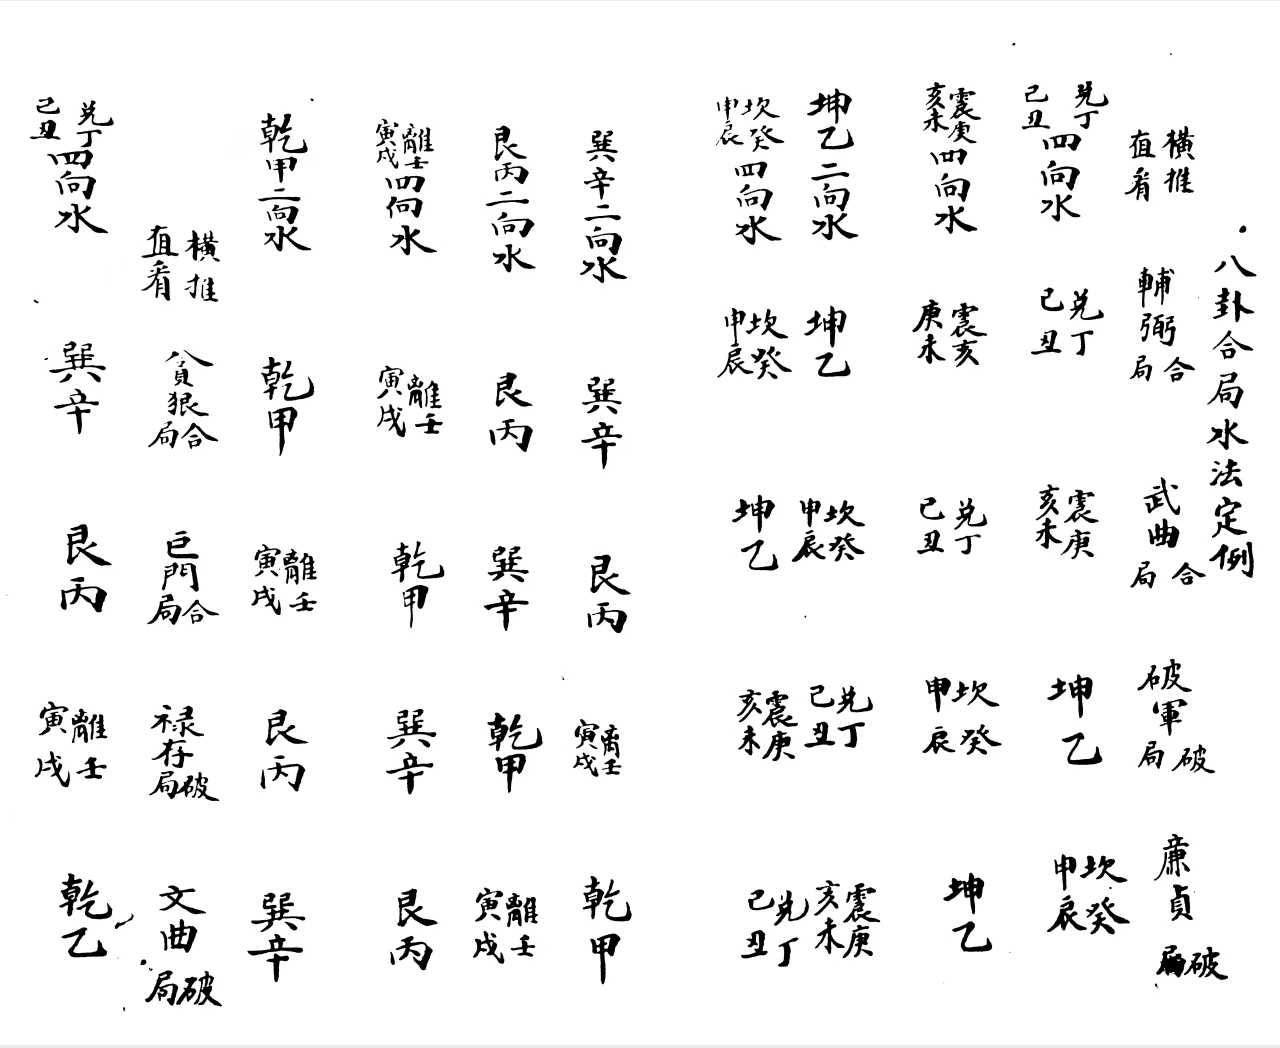 八卦合局水法定例
橫推直看
輔弼合局
武曲合局
破軍破局
廉貞破局
兌丁己丑四向水
兌丁己丑
震庚亥未
坤乙
坎癸申辰
震庚亥未四向水
震亥庚未
兌丁己丑
坎癸申辰
坤乙
坤乙二向水
坤乙
坎癸申辰
兌丁己丑
震庚亥未
坎癸申辰四向水
坎癸申辰
坤乙
震庚亥未
兌丁己丑
巽辛二向水
巽辛
艮丙
離壬寅戌
乾甲
艮丙二向水
艮丙
巽辛
乾甲
離壬寅戌
離壬寅戌四向水
離壬寅戌
乾甲
巽辛
艮丙
乾甲二向水
乾甲
離壬寅戌
艮丙
巽辛
橫推直看
貪狠合局
巨門合局
禄存破局
文曲破局
兌丁己丑四向水
巽辛
艮丙
離壬寅戌
乾乙